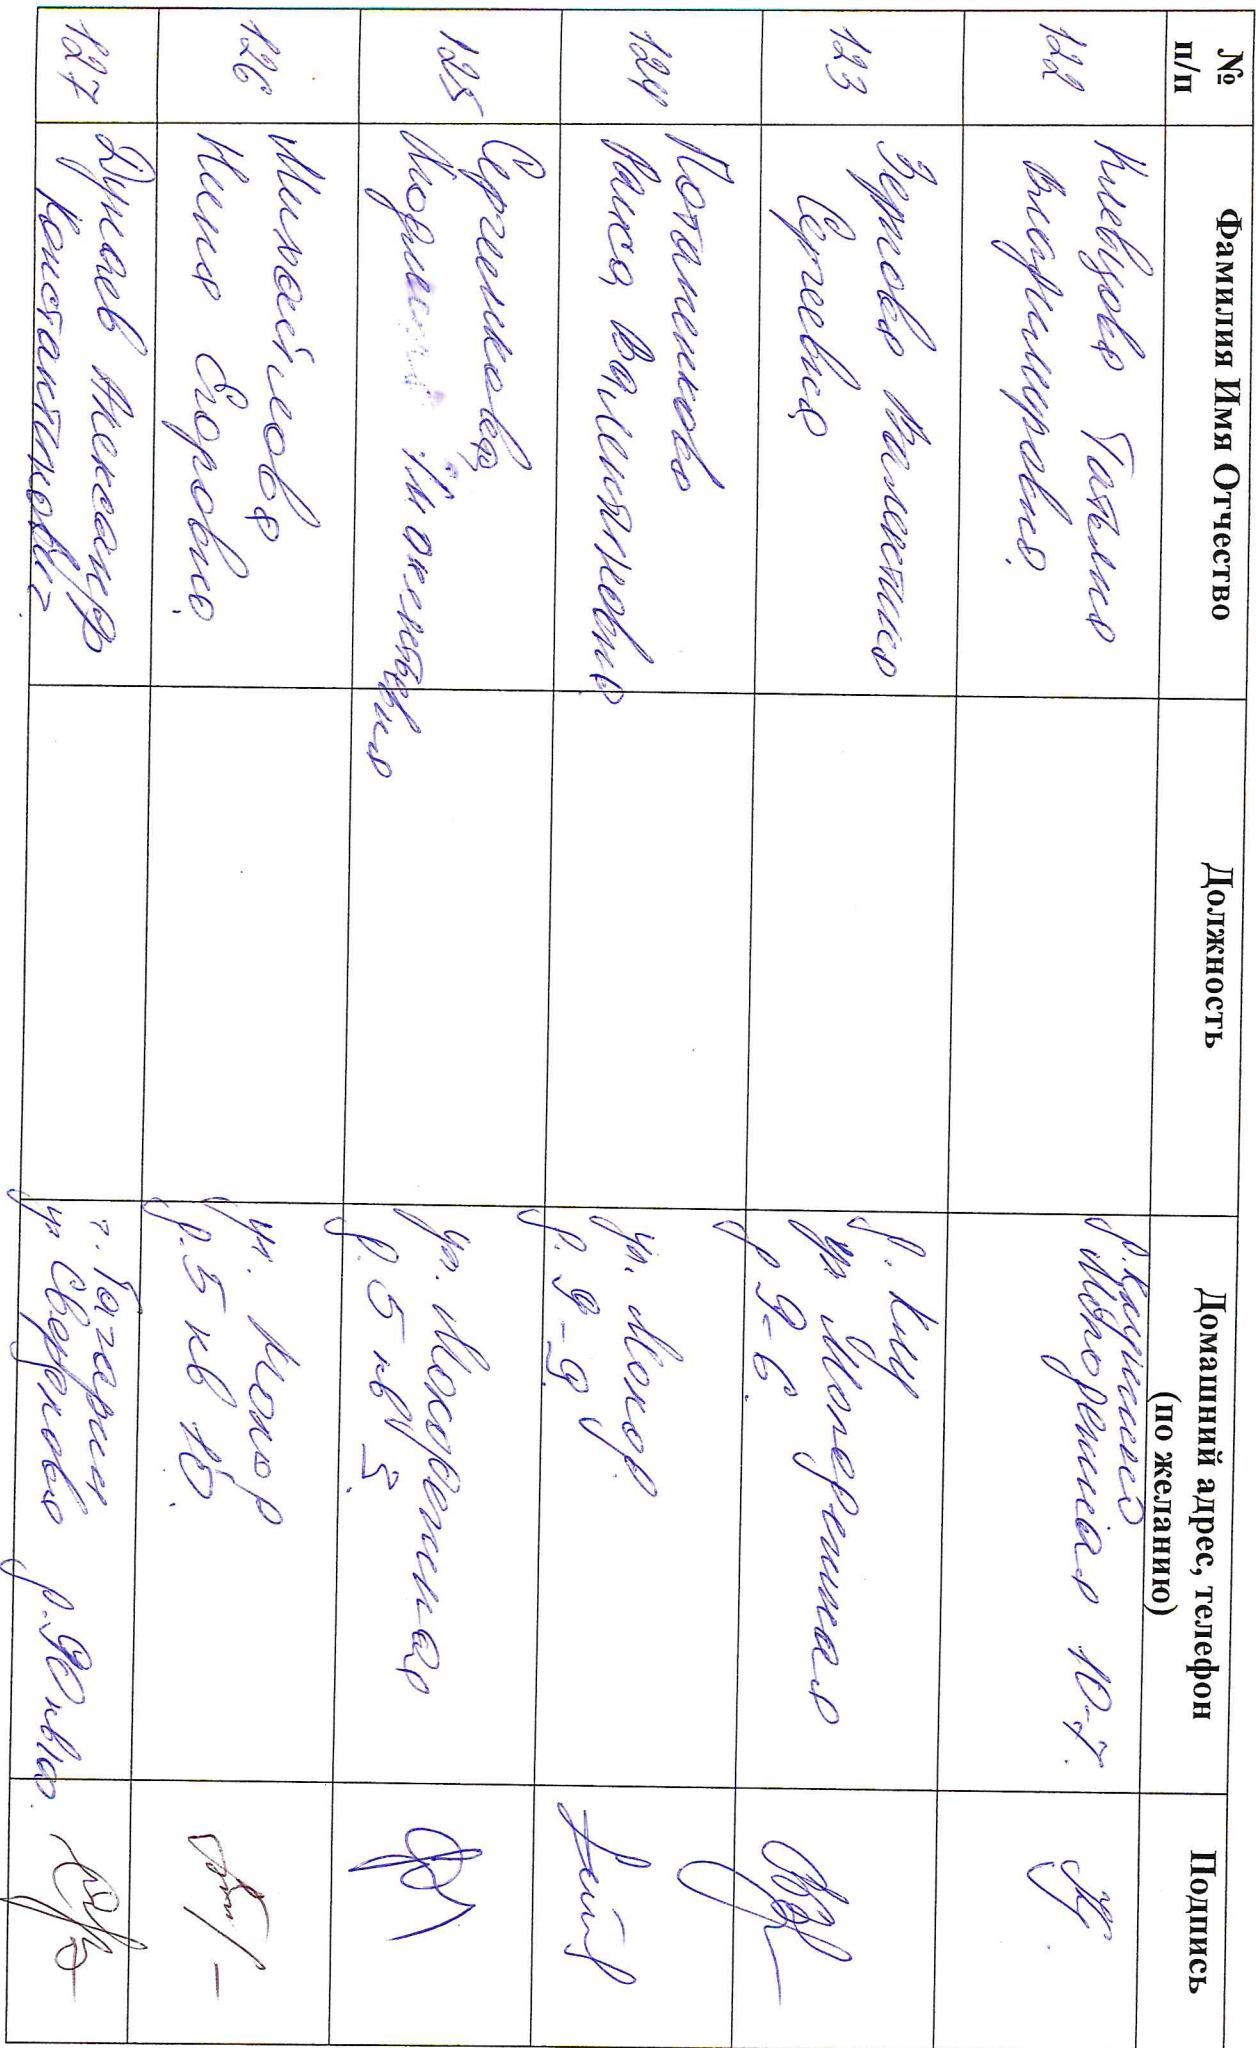 № п/п
Фамилия Имя Отчество
Должность
Домашний адрес, телефон
(по желанию)
Подпись
122
Киевцова Татьяна
Владимировна
Молодежная 10-7.
123
Зертова Валентина
Сергеевна
ул Молодежная
д 9-6.
124
Потапенкова
Раиса Валентиновна
ул. Молод.
д. 9-9.
125
Сергиенкова
ул. Молодежная
д. 5 кв 5.
126
Михайлова
Нина Егоровна.
ул. Молод
д. 5 кв 10.
127
Дунаев Александр
Константинович.
г. Гагарин
ул Свердлова д. 90 кв